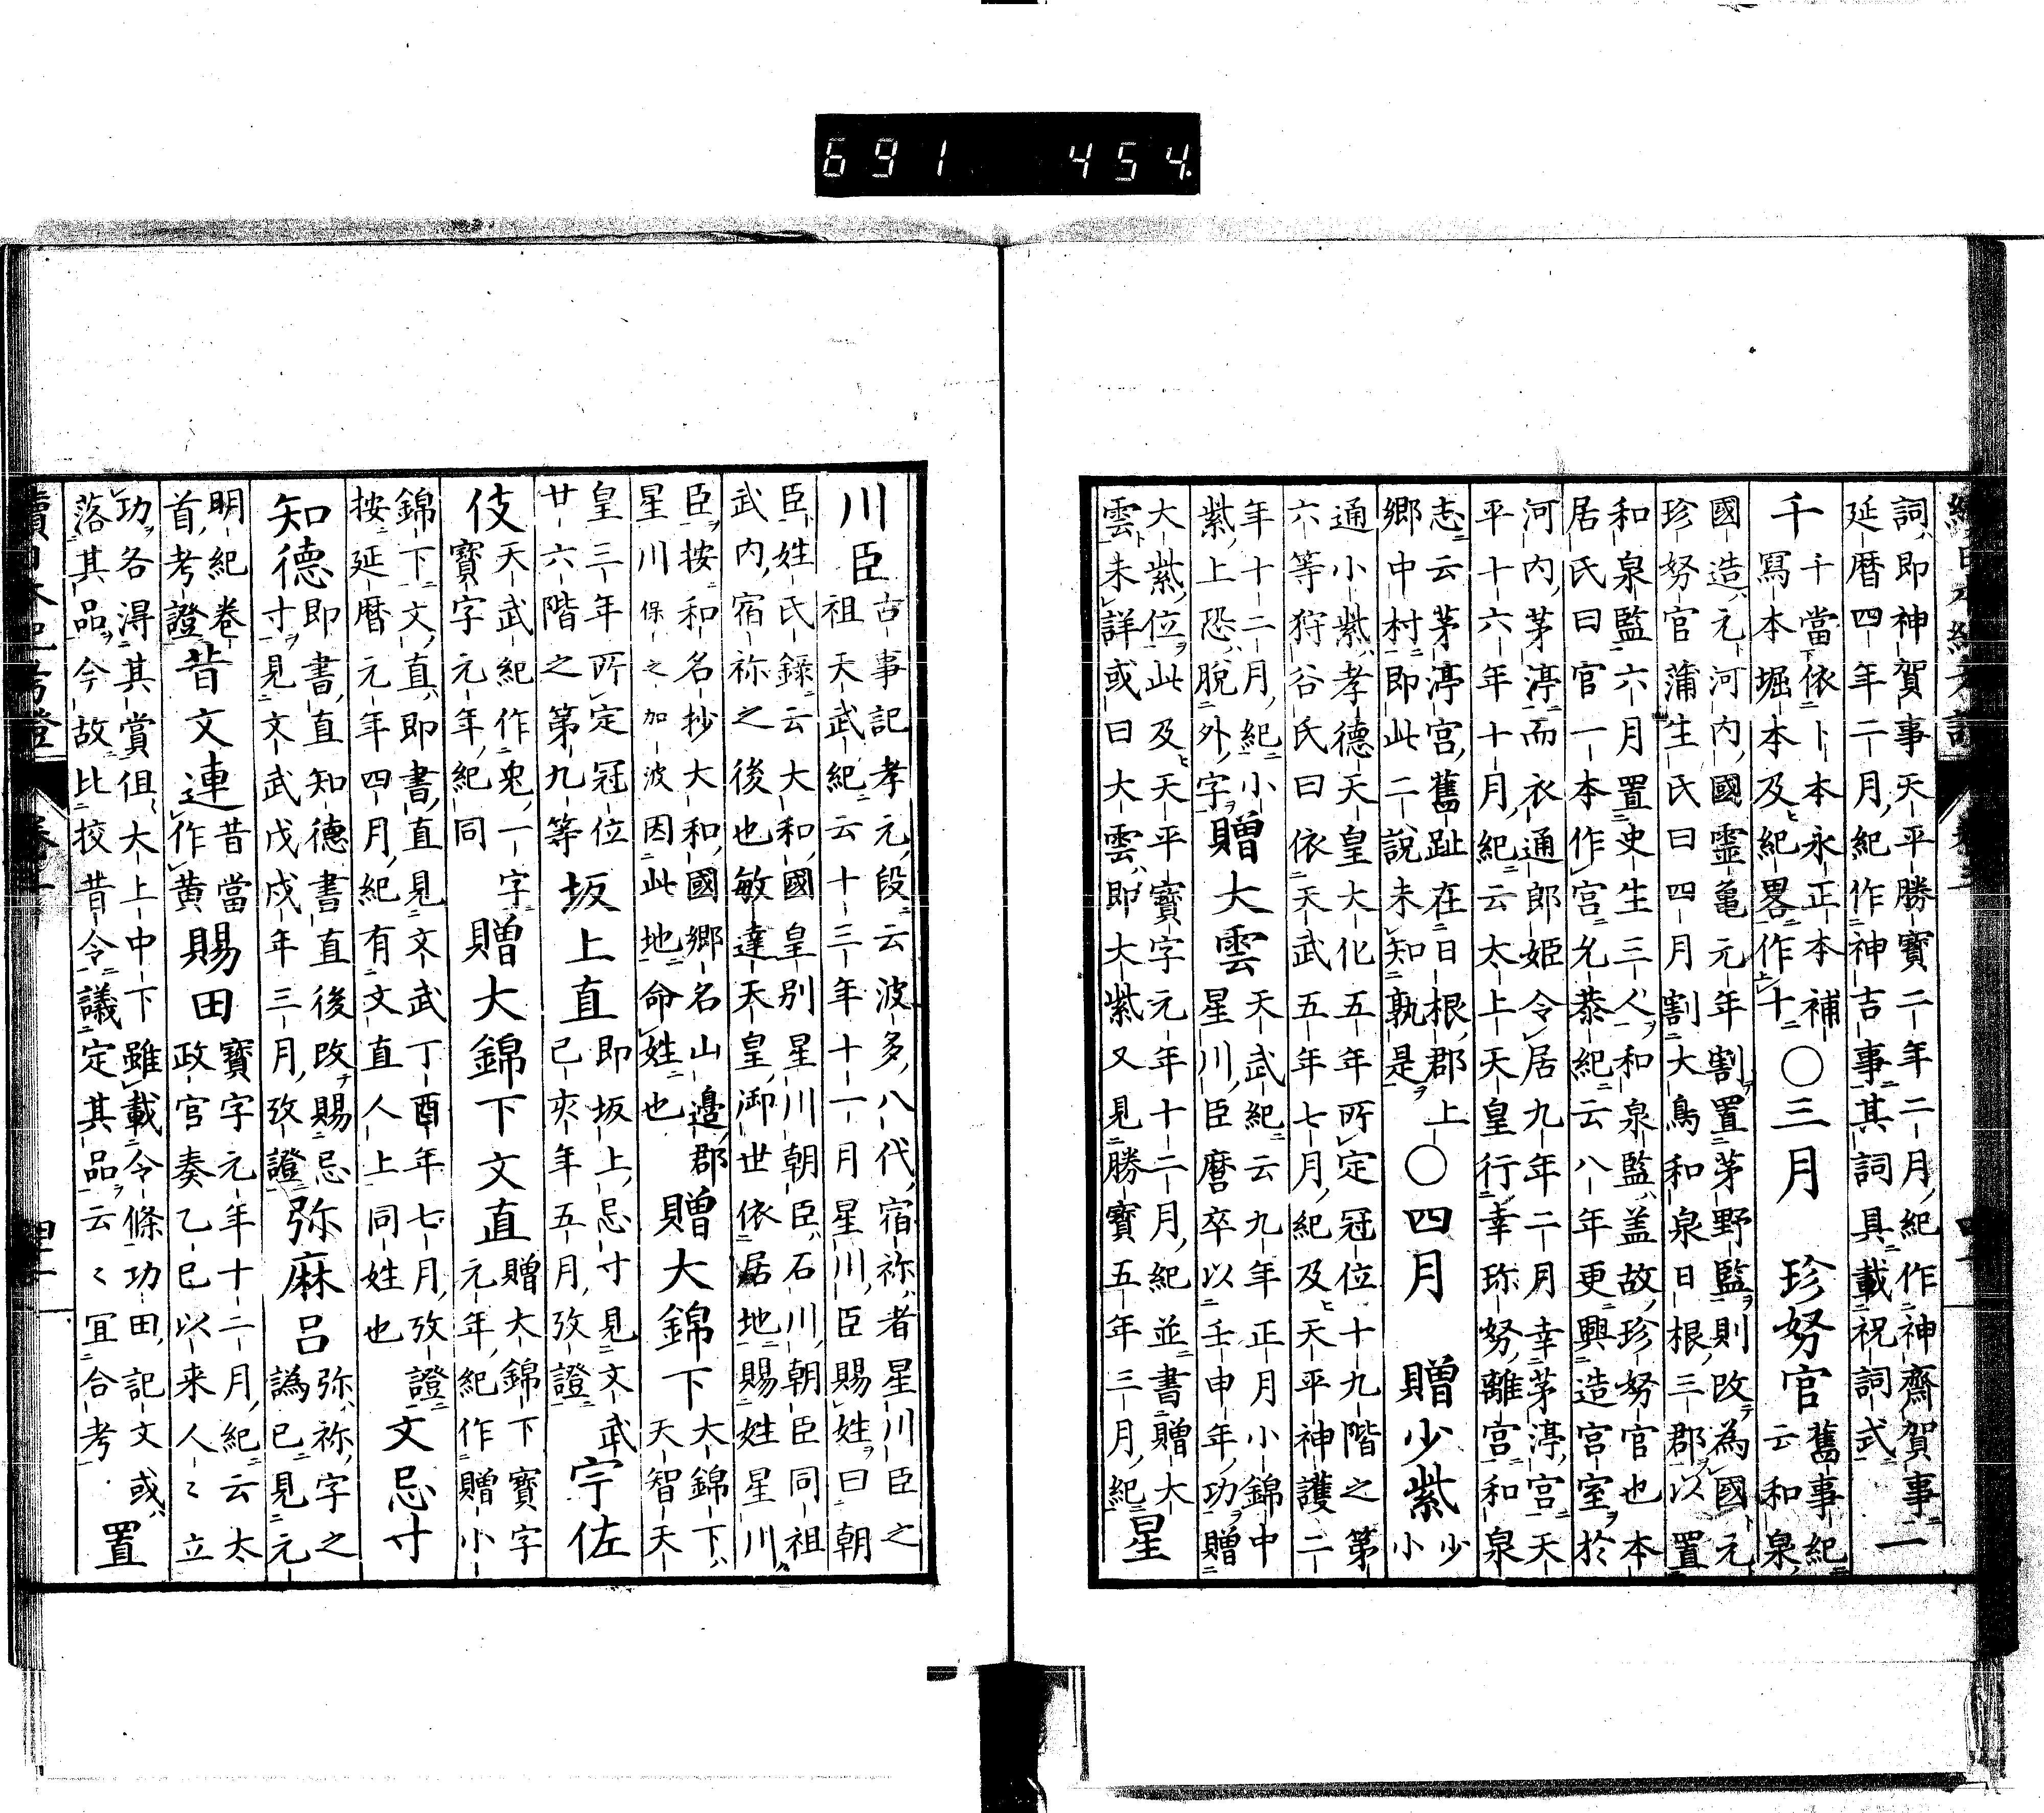 691 454
詞即神賀事天平勝寶二年二月紀作神齋賀事
延暦四年二月紀作神吉事其詞具載祝詞式
一
千
千當依卜本永正本補
寫本堀本及紀畧作十
○三月
珍努官
舊事紀
云和泉
國造元河内國靈亀元年割置茅野監則改為國元
珍努官蒲生氏曰四月割大鳥和泉日根三郡以置
和泉監六月置史生三人和泉監盖故珍努官也本
居氏曰官一本作宮允恭紀云八年更興造宮室於
河内茅渟而衣通郎姫令居九年二月幸茅渟宮天
平十六年十月紀云太上天皇行幸珎努離宮和泉
志云茅渟宮舊趾在日根郡上
郷中村即此二說未知孰是
○四月
贈少紫
少
小
通小紫孝德天皇大化五年所定冠位十九階之第
六等狩谷氏曰依天武五年七月紀及天平神護二
年十二月紀小
紫上恐脫外字
贈大雲
天武紀云九年正月小錦中
星川臣麿卒以壬申年功贈
大紫位此及天平寳字元年十二月紀並書贈大
雲未詳或曰大雲即大紫又見勝寳五年三月紀
星
川臣
古事記孝元段云波多八代宿祢者星川臣之
祖天武紀云十三年十一月星川臣賜姓曰朝
臣姓氏錄云大和國皇別星川朝臣石川朝臣同祖
武内宿祢之後也敏達天皇御世依居地賜姓星川
臣按和名抄大和國郷名山邉郡
星川保之加波因此地命姓也
贈大錦下
大錦下
天智天
皇三年所定冠位
廿六階之第九等
坂上直
即坂上忌寸見文武
己亥年五月攷證
宇佐
伎
天武紀作兎一字
寳字元年紀同
贈大錦下文直
贈大錦下寳字
元年紀作贈小
錦下文直即書直見文武丁酉年七月攷證
按延暦元年四月紀有文直人上同姓也
文忌寸
知德
即書直知德書直後改賜忌
寸見文武戊戌年三月攷證
弥麻呂
弥祢字之
譌已見元
明紀卷
首考證
昔文連
昔當
作黄
賜田
寳字元年十二月紀云太
政官奏乙巳以来人〻立
功各得其賞但大上中下雖載令條功田記文或
落其品今故比挍昔今議定其品云〻宜合考
置